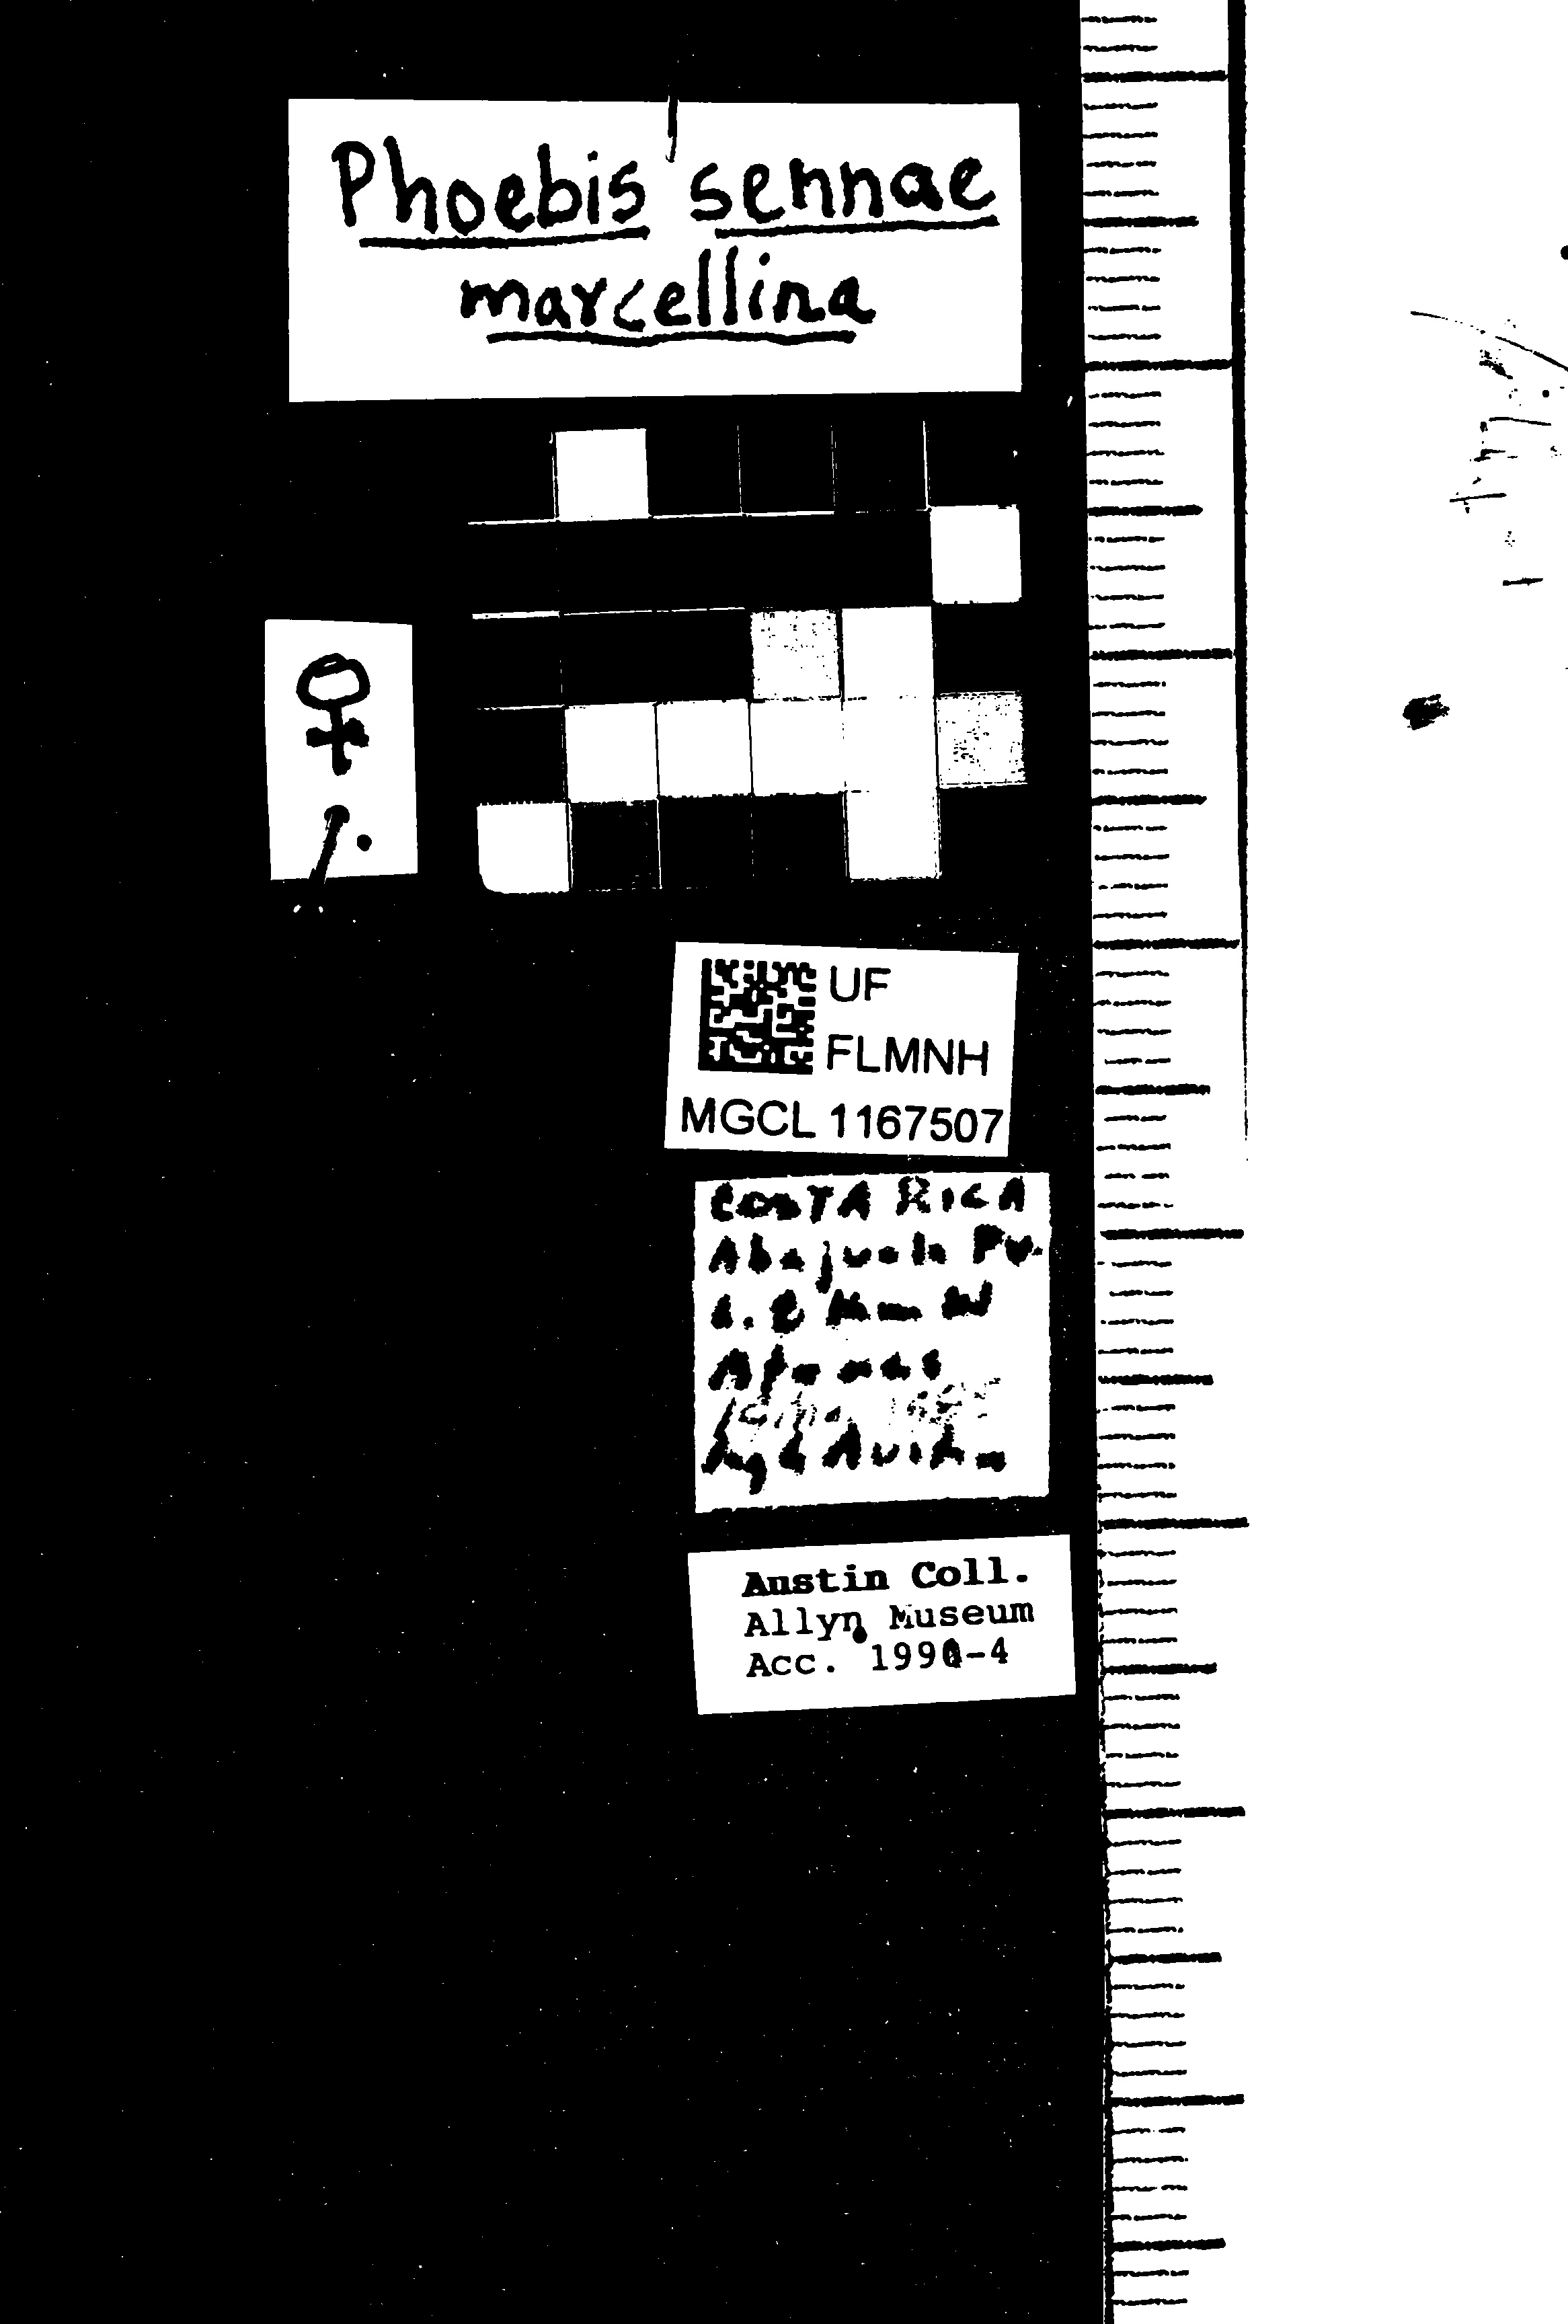 Phoebis sennae
marcellina
♀
UF
FLMNH
MGCL 1167507
COSTA RICA
Alajuela Pv.
W
Atenas
Austin Coll.
Allyn Museum
Acc. 1990-4